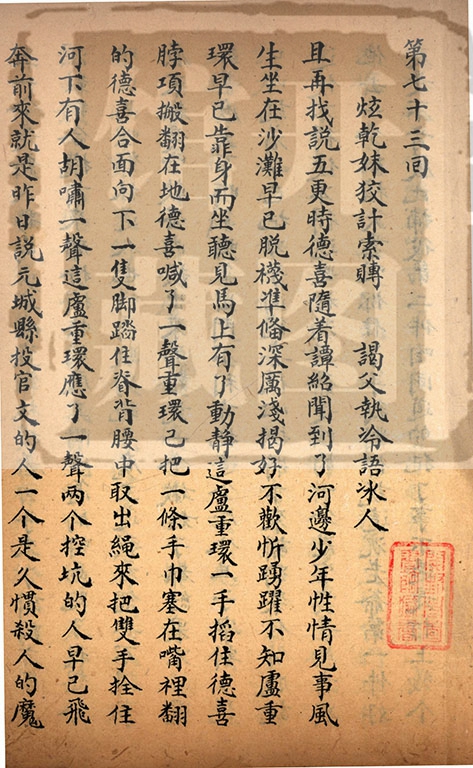 第七十三回
炫乾妹狡計索賻　謁父執冷語冰人
且再找説五更時德喜隨着譚紹聞到了河邊少年性情見事風
生坐在沙灘早已脱襪準備深厲淺揭好不歡忻踴躍不知盧重
環早已靠身而坐聽見馬上有了動靜這盧重環一手搯住德喜
脖項搬翻在地德喜喊了一聲重環已把一條手巾塞在嘴裡翻
的德喜合面向下一隻脚踏住脊背腰中取出繩來把雙手拴住
河下有人胡嘯一聲這盧重環應了一聲两个挖坑的人早已飛
奔前來就是昨日説元城縣投官文的人一个是久慣殺人的魔